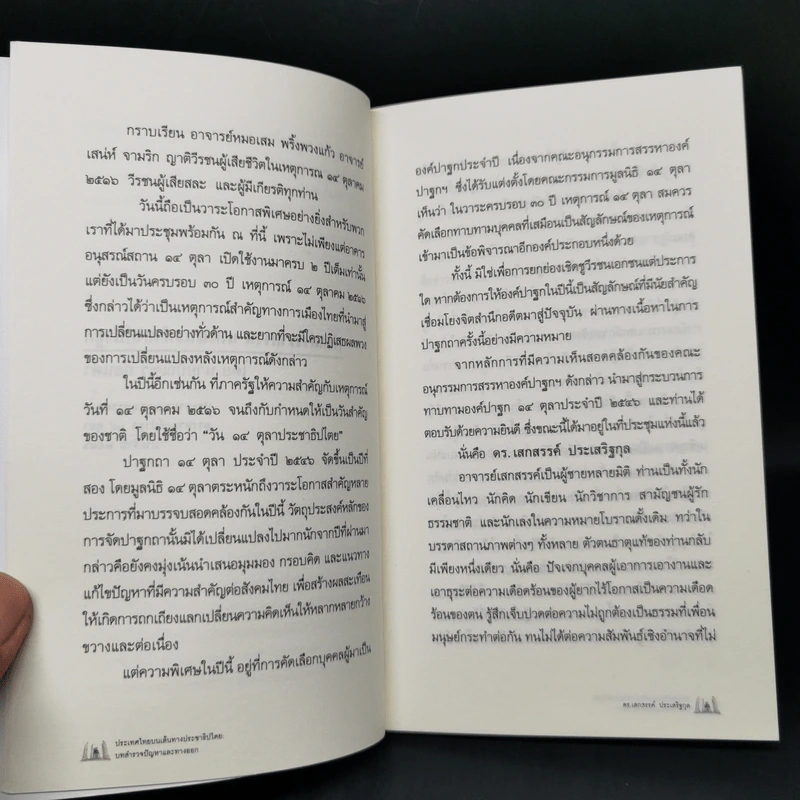 กราบเรียน อาจารย์หมอเสม พริ้งพวงแก้ว อาจารย์
เสน่ห์ จามริก ญาติวีรชนผู้เสียชีวิตในเหตุการณ์ ๑๔ ตุลาคม
๒๕๑๖ วีรชนผู้เสียสละ และผู้มีเกียรติทุกท่าน
วันนี้ถือเป็นวาระโอกาสพิเศษอย่างยิ่งสำหรับพวก
เราที่ได้มาประชุมพร้อมกัน ณ ที่นี้ เพราะไม่เพียงแต่อาคาร
อนุสรณ์สถาน ๑๔ ตุลา เปิดใช้งานมาครบ ๒ ปีเต็มเท่านั้น
แต่ยังเป็นวันครบรอบ ๓๐ ปี เหตุการณ์ ๑๔ ตุลาคม ๒๕๑๖
ซึ่งกล่าวได้ว่าเป็นเหตุการณ์สำคัญทางการเมืองไทยที่นำมาสู่
การเปลี่ยนแปลงอย่างทั่วด้าน และยากที่จะมีใครปฏิเสธผลพวง
ของการเปลี่ยนแปลงหลังเหตุการณ์ดังกล่าว
ในปีนี้อีกเช่นกัน ที่ภาครัฐให้ความสำคัญกับเหตุการณ์
วันที่ ๑๔ ตุลาคม ๒๕๑๖ จนถึงกับกำหนดให้เป็นวันสำคัญ
ของชาติ โดยใช้ชื่อว่า “วัน ๑๔ ตุลาประชาธิปไตย”
ปาฐกถา ๑๔ ตุลา ประจำปี ๒๕๔๖ จัดขึ้นเป็นปีที่
สอง โดยมูลนิธิ ๑๔ ตุลาตระหนักถึงวาระโอกาสสำคัญหลาย
ประการที่มาบรรจบสอดคล้องกันในปีนี้ วัตถุประสงค์หลักของ
การจัดปาฐกถานั้นมิได้เปลี่ยนแปลงไปมากนักจากปีที่ผ่านมา
กล่าวคือยังคงมุ่งเน้นนำเสนอมุมมอง กรอบคิด และแนวทาง
แก้ไขปัญหาที่มีความสำคัญต่อสังคมไทย เพื่อสร้างผลสะเทือน
ให้เกิดการถกเถียงแลกเปลี่ยนความคิดเห็นให้หลากหลายกว้าง
ขวางและต่อเนื่อง
แต่ความพิเศษในปีนี้ อยู่ที่การคัดเลือกบุคคลผู้มาเป็น
ประเทศไทยบนเส้นทางประชาธิปไตย:
บทสำรวจปัญหาและทางออก
องค์ปาฐกประจำปี เนื่องจากคณะอนุกรรมการสรรหาองค์
ปาฐกฯ ซึ่งได้รับแต่งตั้งโดยคณะกรรมการมูลนิธิ ๑๔ ตุลา
เห็นว่า ในวาระครบรอบ ๓๐ ปี เหตุการณ์ ๑๔ ตุลา สมควร
คัดเลือกทาบทามบุคคลที่เสมือนเป็นสัญลักษณ์ของเหตุการณ์
เข้ามาเป็นข้อพิจารณาอีกองค์ประกอบหนึ่งด้วย
ทั้งนี้ มิใช่เพื่อการยกย่องเชิดชูวีรชนเอกชนแต่ประการ
ใด หากต้องการให้องค์ปาฐกในปีนี้เป็นสัญลักษณ์ที่มีนัยสำคัญ
เชื่อมโยงจิตสำนึกอดีตมาสู่ปัจจุบัน ผ่านทางเนื้อหาในการ
ปาฐกถาครั้งนี้อย่างมีความหมาย
จากหลักการที่มีความเห็นสอดคล้องกันของคณะ
อนุกรรมการสรรหาองค์ปาฐกฯ ดังกล่าว นำมาสู่กระบวนการ
ทาบทามองค์ปาฐก ๑๔ ตุลาประจำปี ๒๕๔๖ และท่านได้
ตอบรับด้วยความยินดี ซึ่งขณะนี้ได้มาอยู่ในที่ประชุมแห่งนี้แล้ว
นั่นคือ ดร. เสกสรรค์ ประเสริฐกุล
อาจารย์เสกสรรค์เป็นผู้ชายหลายมิติ ท่านเป็นทั้งนัก
เคลื่อนไหว นักคิด นักเขียน นักวิชาการ สามัญชนผู้รัก
ธรรมชาติ และนักเลงในความหมายโบราณดั้งเดิม ทว่าใน
บรรดาสถานภาพต่างๆ ทั้งหลาย ตัวตนธาตุแท้ของท่านกลับ
มีเพียงหนึ่งเดียว นั่นคือ ปัจเจกบุคคลผู้เอาการเอางานและ
เอาธุระต่อความเดือดร้อนของผู้ยากไร้โอกาสเป็นความเดือด
ร้อนของตน รู้สึกเจ็บปวดต่อความไม่ถูกต้องเป็นธรรมที่เพื่อน
มนุษย์กระทำต่อกัน ทนไม่ได้ต่อความสัมพันธ์เชิงอำนาจที่ไม่
ดร.เสกสรรค์ ประเสริฐกุล